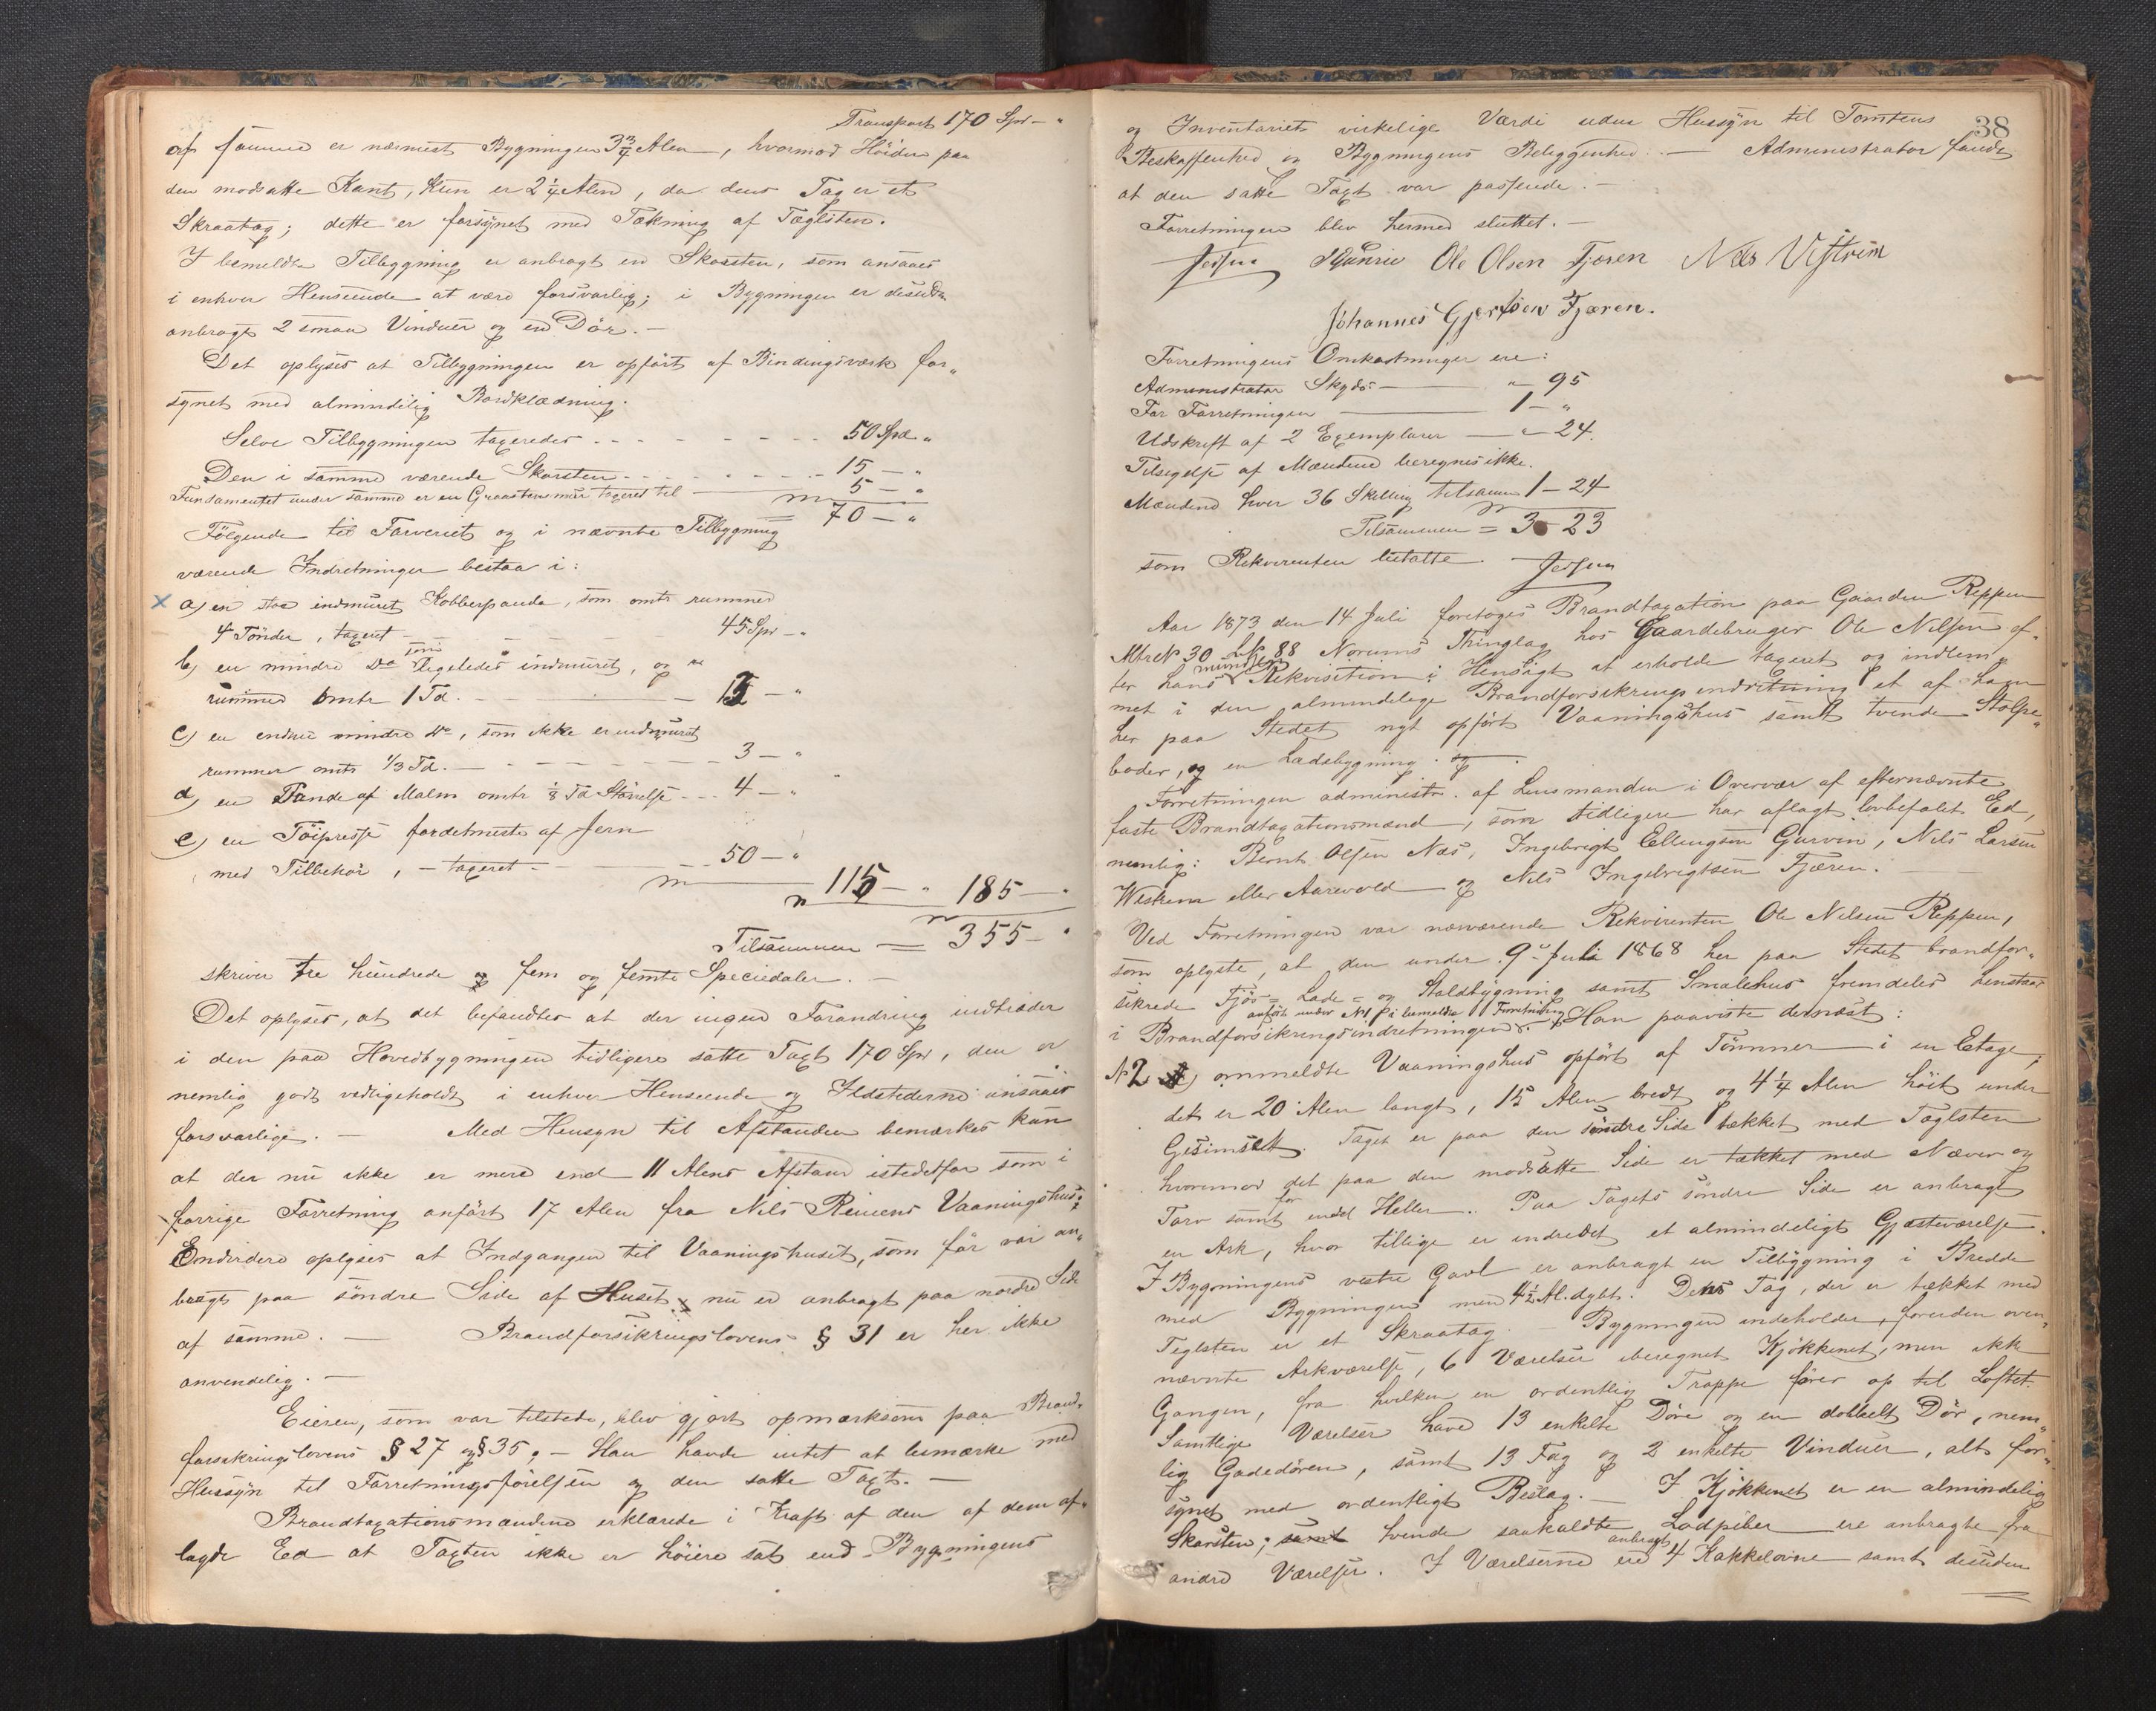 Transport 170 Spd – "
af samme er nærmest Bygningen 3 3/4 Alen, hvormod Höiden paa
den modsatte Kant, kun er 2 1/4 Alen, da dens Tag er et
Skraatag; dette er forsynet med Tækning af Taglsten.
I bemeldte Tilbygning er anbragt en Skorsten, som ansaaes
i enhver Henseende at være forsvarlig; i Bygningen er desuden
anbragt 2 smaa Vinduer og en Dör. –
Det oplyses at Tilbygningen er opfört af Bindingsværk for„
synet med almindelig Bordklædning.
Selve Tilbygningen taxeredes - - - - - - - 50 Spd "
Den i samme værende Skorsten - - - - - - 15 – "
Fundamentet under samme er en Graastensmur taxeret til — 5 – "
Fölgende til Farveriet og i nævnte Tilbygning = 70 – "
værende Indretninger bestaa i:
x a) en stor indmuret Kobberpande, som omtr rummer
4 Tönder, taxeret - - - - - 45 Spd – "
b) en mindre Do ligeledes indmuret, og som
rummer omtr 1 Td. - - - - - 13 – "
c) en endnu mindre Do, som ikke er indmuret
rummer omtr 1/3 Td. - - - - - - 3 – "
d) en Pande af Malm omtr 1/8 Td Störrelse - - - 4 – "
e) en Töipresse fordetmeste af Jern
med Tilbehör, – taxeret - - - - 50 – "
115 – " 185 – "
Tilsammen = 355 – "
skriver tre hundrede og fem og femti Speciedaler. –
Det oplyses, at det befandtes at der ingen Forandring indtræder
i den paa Hovedbygningen tidligere satte Taxt 170 Spd, den er
nemlig godt vedligeholdt i enhver Henseende og Ildstederne ansaaes
forsvarlige. – Med Hensyn til Afstanden bemærkes kun
at der nu ikke er mere end 11 Alens Afstand istedetfor som i
forrige Forretning anfört 17 Alen fra Nils Reinens Vaaningshus;
Endvidere oplyses at Indgangen til Vaaningshuset, som för var an„
bragt paa söndre Side af Huset, nu er anbragt paa nordre Side
af samme. – Brandforsikringslovens § 31 er her ikke
anvendelig. –
Eieren, som var tilstede, blev gjort opmærksom paa Brand„
forsikringslovens § 27 og § 35, – Han havde intet at bemærke med
Hensyn til Forretningsförelsen og den satte Taxt. –
Brandtaxationsmændene erklærede i Kraft af den af dem af„
lagde Ed at Taxten ikke er höiere sat end Bygningens
38
og Inventariets virkelige Værdi uden Hensyn til Tomtens
Beskaffenhed og Bygningens Beliggenhed. – Administrator fandt
at den satte Taxt var passende. –
Forretningen blev hermed sluttet. –
Ole Olsen Fjæren
Johannes Gjertsen Fjæren.
Forretningens Omkostninger ere:
Administrator Skyds — " 95
For Forretningen — 1 – "
Udskrift af 2 Exemplarer — " 24.
Tilsigelse af Mændene beregnes ikke.
Mændene hver 36 Skilling tilsamm 1 – 24
Tilsammen = 3 – 23
som Rekvirenten betalte.
Aar 1873 den 14 Juli foretoges Brandtaxation paa Gaarden Reppen
Mtr No 30 Lb 88 Norums Thinglag hos Gaardebruger Ole Nilsen ef„
ter hans mundtl Rekvisition i Hensigt at erholde taxeret og indlem„
met i den almindelige Brandforsikringsindretning et af ham
her paa Stedet nyt opfört Vaaningshus samt tvende Stolpe„
boder, og en Ladebygning.
Forretningen administr. af Lensmanden i Overvær af efternævnte
faste Brandtaxationsmænd, som tidligere har aflagt lovbefalet Ed,
nemlig: Bernt Olsen Næs, Ingebrigt Ellingsen Gurvin, Nils Larsen
Westrem eller Aarevold og Nils Ingebrigtsen Fjæren. –
Ved Forretningen var nærværende Rekvirenten Ole Nilsen Reppen,
som oplyste, at den under 9de Juli 1868 her paa Stedet brandfor„
sikrede Fjös= Lade= og Staldbygning samt Smalehus fremdeles henstaar
anfört under No 1 i bemeldte Forretning
i Brandforsikringsindretningen. Han paaviste dernæst:
No 2 ommeldte Vaaningshus opfört af Tömmer i en Etage;
det er 20 Alen langt, 15 Alen bredt og 4 1/4 Alen höit under
Gesimset. Taget er paa den söndre Side tækket med Taglsten
hvormod det paa den modsatte Side er tækket med Næver og
Torv samt endel Heller. Paa Tagets söndre Side er anbragt
en Ark, hvor tillige er indredet et almindeligt Gjæsteværelse.
I Bygningens vestre Gavl er anbragt en Tilbygning i Bredde
med Bygningen men 4 1/2 Al. dybt. Dens Tag, der er tækket med
Teglsten er et Skraatag. – Bygningen indeholder, foruden oven„
nævnte Arkværelse, 6 Værelser iberegnet Kjökkenet, men ikke
Gangen, fra hvilken en ordentlig Trappe förer op til Loftet.
Samtlige Værelser have 13 enkelte Döre og en dobbelt Dör, nem„
lig Gadedören, samt 13 Fag og 2 enkelte Vinduer, alt for„
synet med ordentligt Beslag. – I Kjökkenet er en almindelig
Skorsten; samt tvende saakaldte Lodpiber ere anbragte fra
andre Værelser. I Værelserne ere anbragt 4 Kakkelovne samt desuden